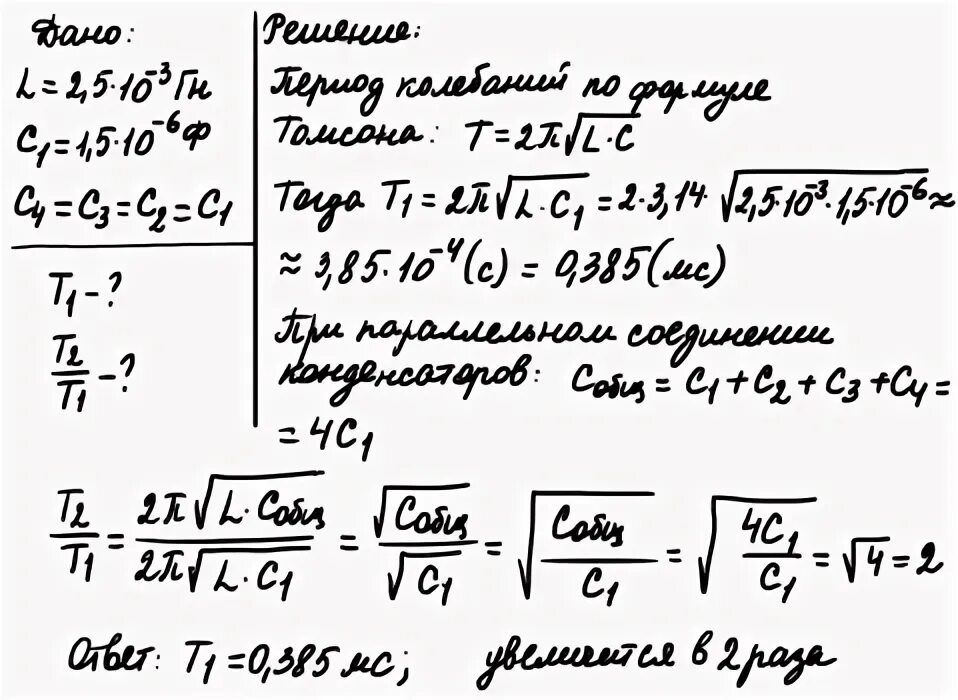 Дано:
L = 2,5·10⁻³ Гн
C₁ = 1,5·10⁻⁶ Ф
C₄ = C₃ = C₂ = C₁
T₁ - ?
T₂/T₁ - ?
Решение:
Период колебаний по формуле
Томсона: T = 2π√(L·C)
Тогда T₁ = 2π√(L·C₁) = 2·3,14·√(2,5·10⁻³·1,5·10⁻⁶) ≈
≈ 3,85·10⁻⁴ (с) = 0,385 (мс)
При параллельном соединении
конденсаторов: Cобщ = C₁ + C₂ + C₃ + C₄ =
= 4C₁
T₂/T₁ = 2π√(L·Cобщ)/2π√(L·C₁) = √Cобщ/√C₁ = √(Cобщ/C₁) = √(4C₁/C₁) = √4 = 2
Ответ: T₁ = 0,385 мс; увеличится в 2 раза